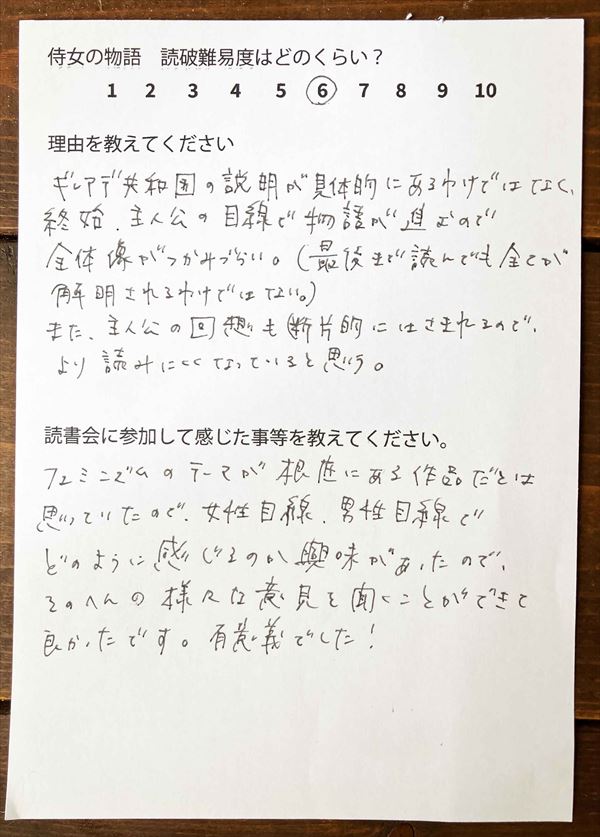 侍女の物語　読破難易度はどのくらい？
1 2 3 4 5 6 7 8 9 10
理由を教えてください
ギレアデ共和国の説明が具体的にあるわけではなく、
終始、主人公の目線で物語が進むので
全体像がつかみづらい。(最後まで読んでも全てが
解明されるわけではない。)
また、主人公の回想も断片的にはさまれるので、
より読みにくくなっていると思う。
読書会に参加して感じた事等を教えてください。
フェミニズムのテーマが根底にある作品だとは
思っていたので、女性目線、男性目線で
どのように感じるのか興味があったので、
そのへんの様々な意見を聞くことができて
良かったです。有意義でした！